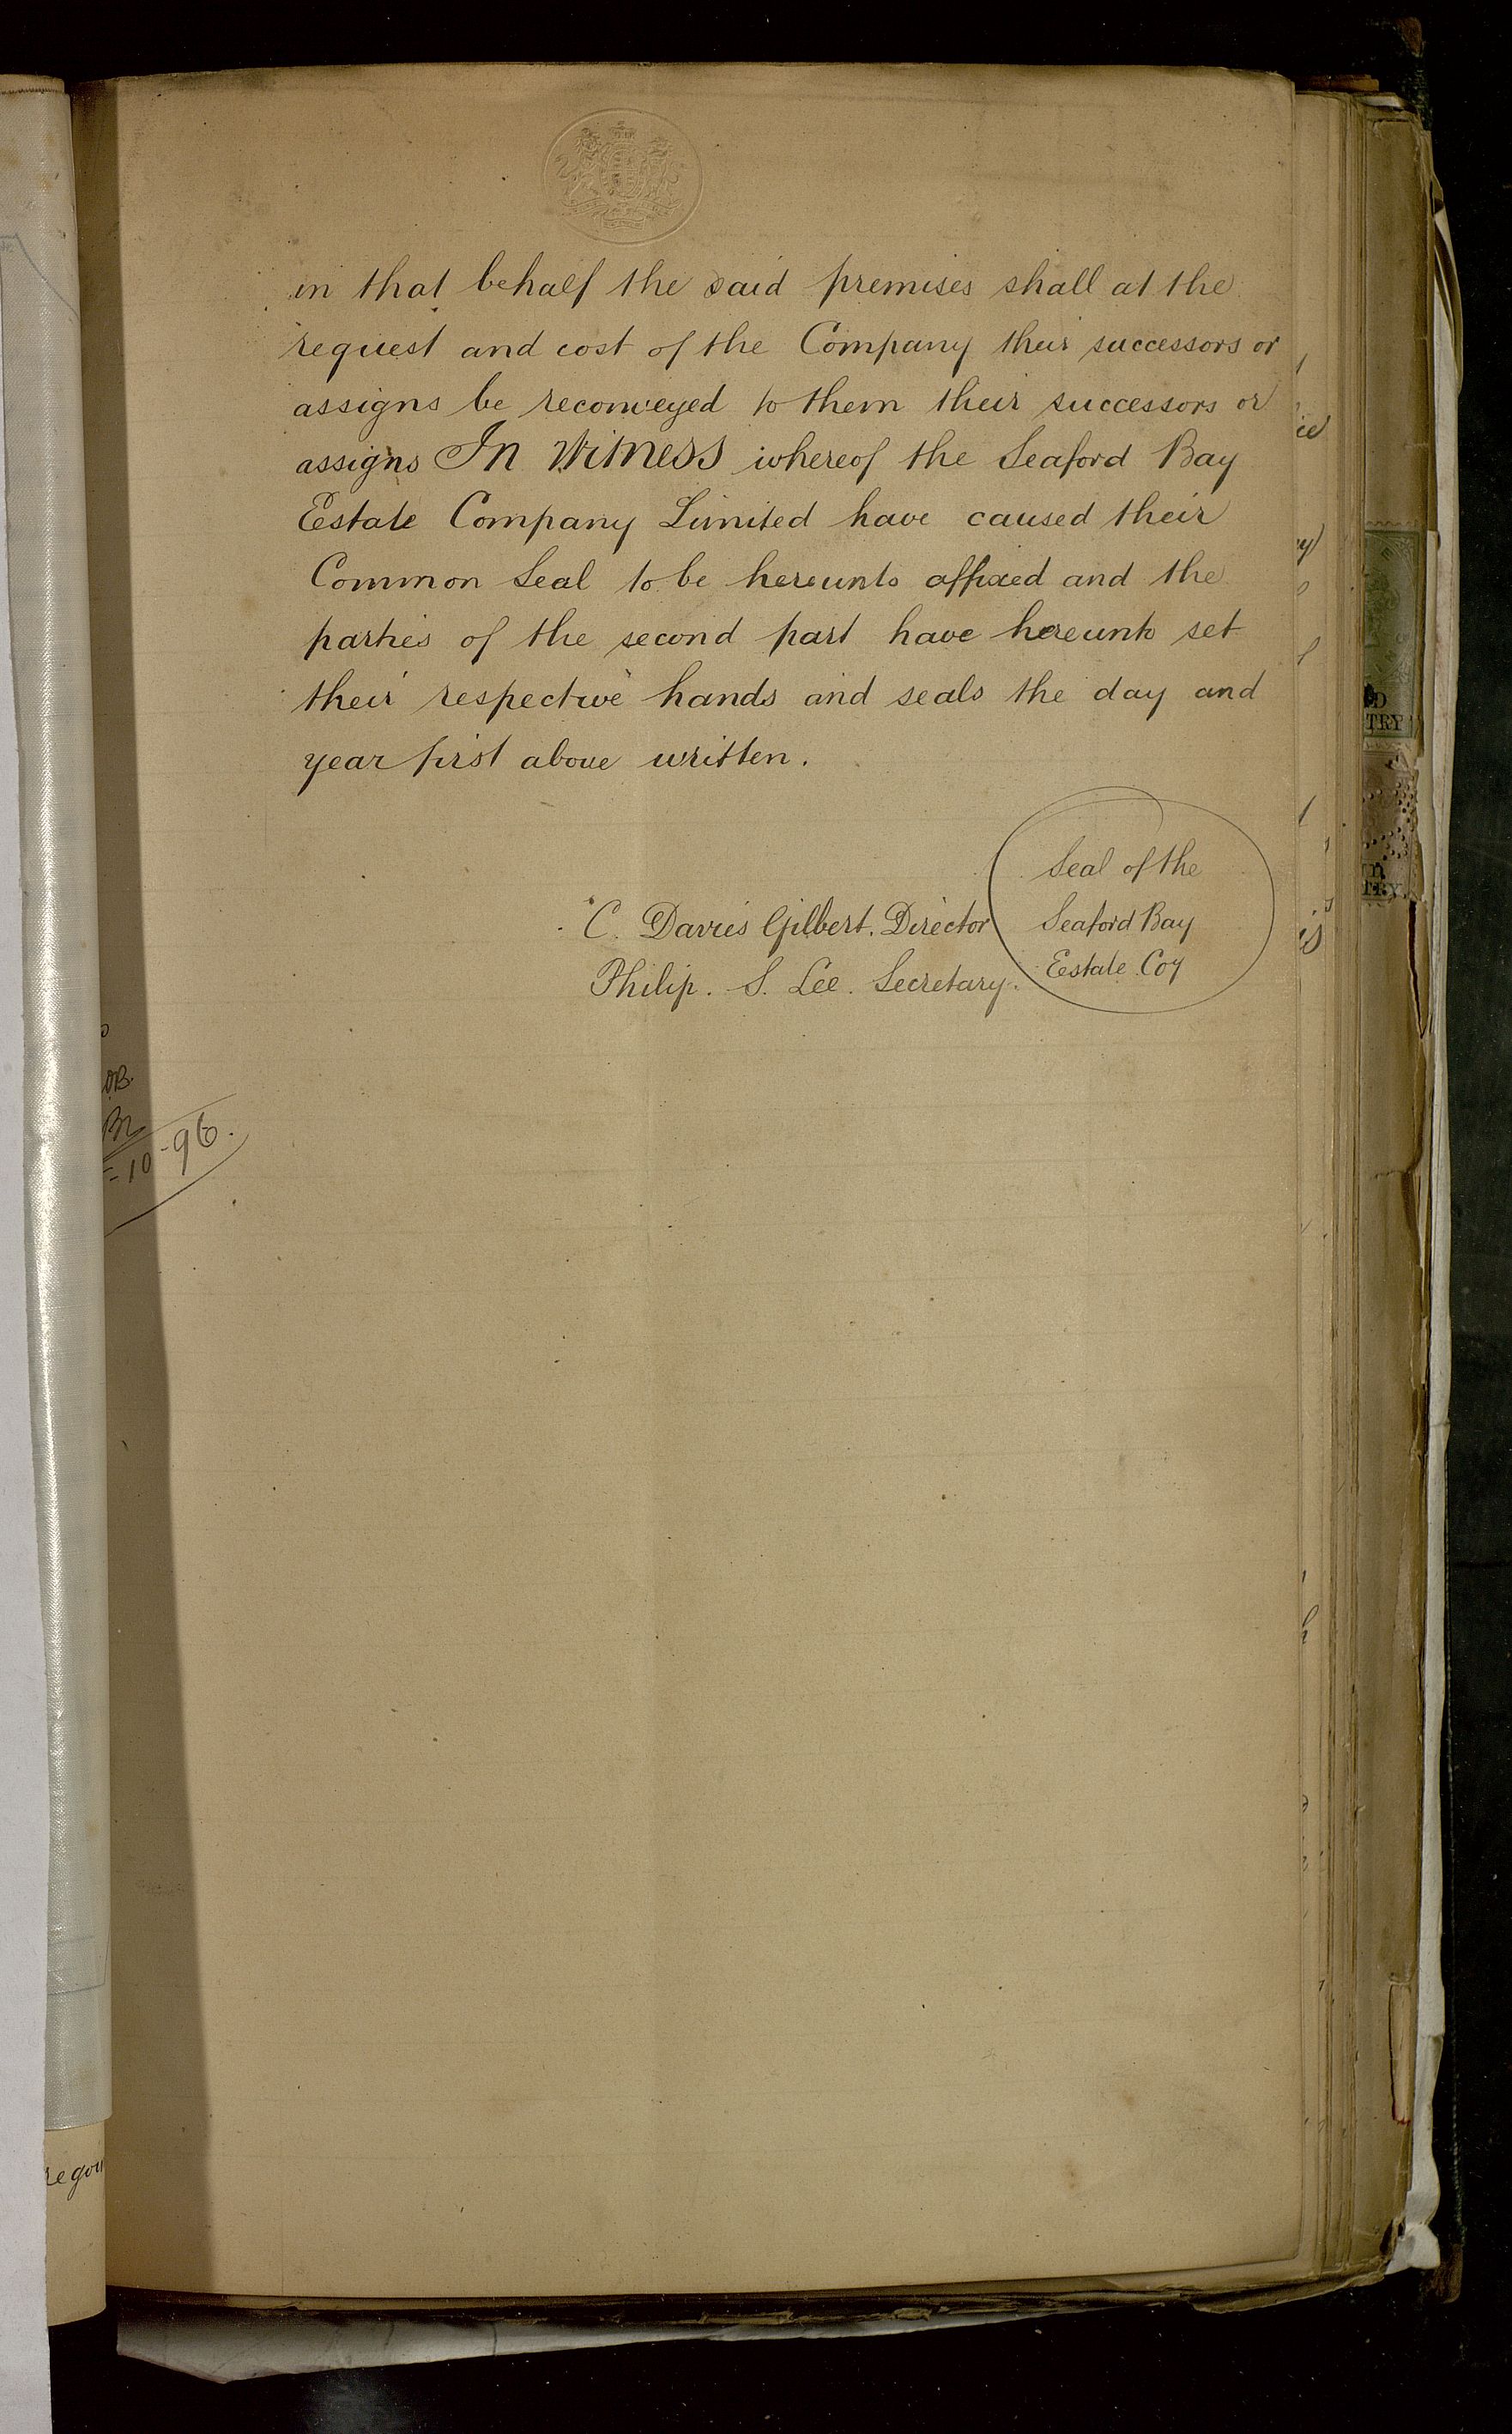 in that behalf the said premises shall at the
request and cost of the Company their successors or
assigns be reconveyed to them their successors or
assigns In Witness whereof the Seaford Bay
Estate Company Limited have caused their
Common Seal to be hereunto affixed and the
parties of the second part have hereunto set
their respective hands and seals the day and
year first above written.
Seal of the
Seaford Bay
Estate Coy
C. Davies Gilbert. Director
Philip. S. Lee. Secretary.
10-96.
TRY
TRY.